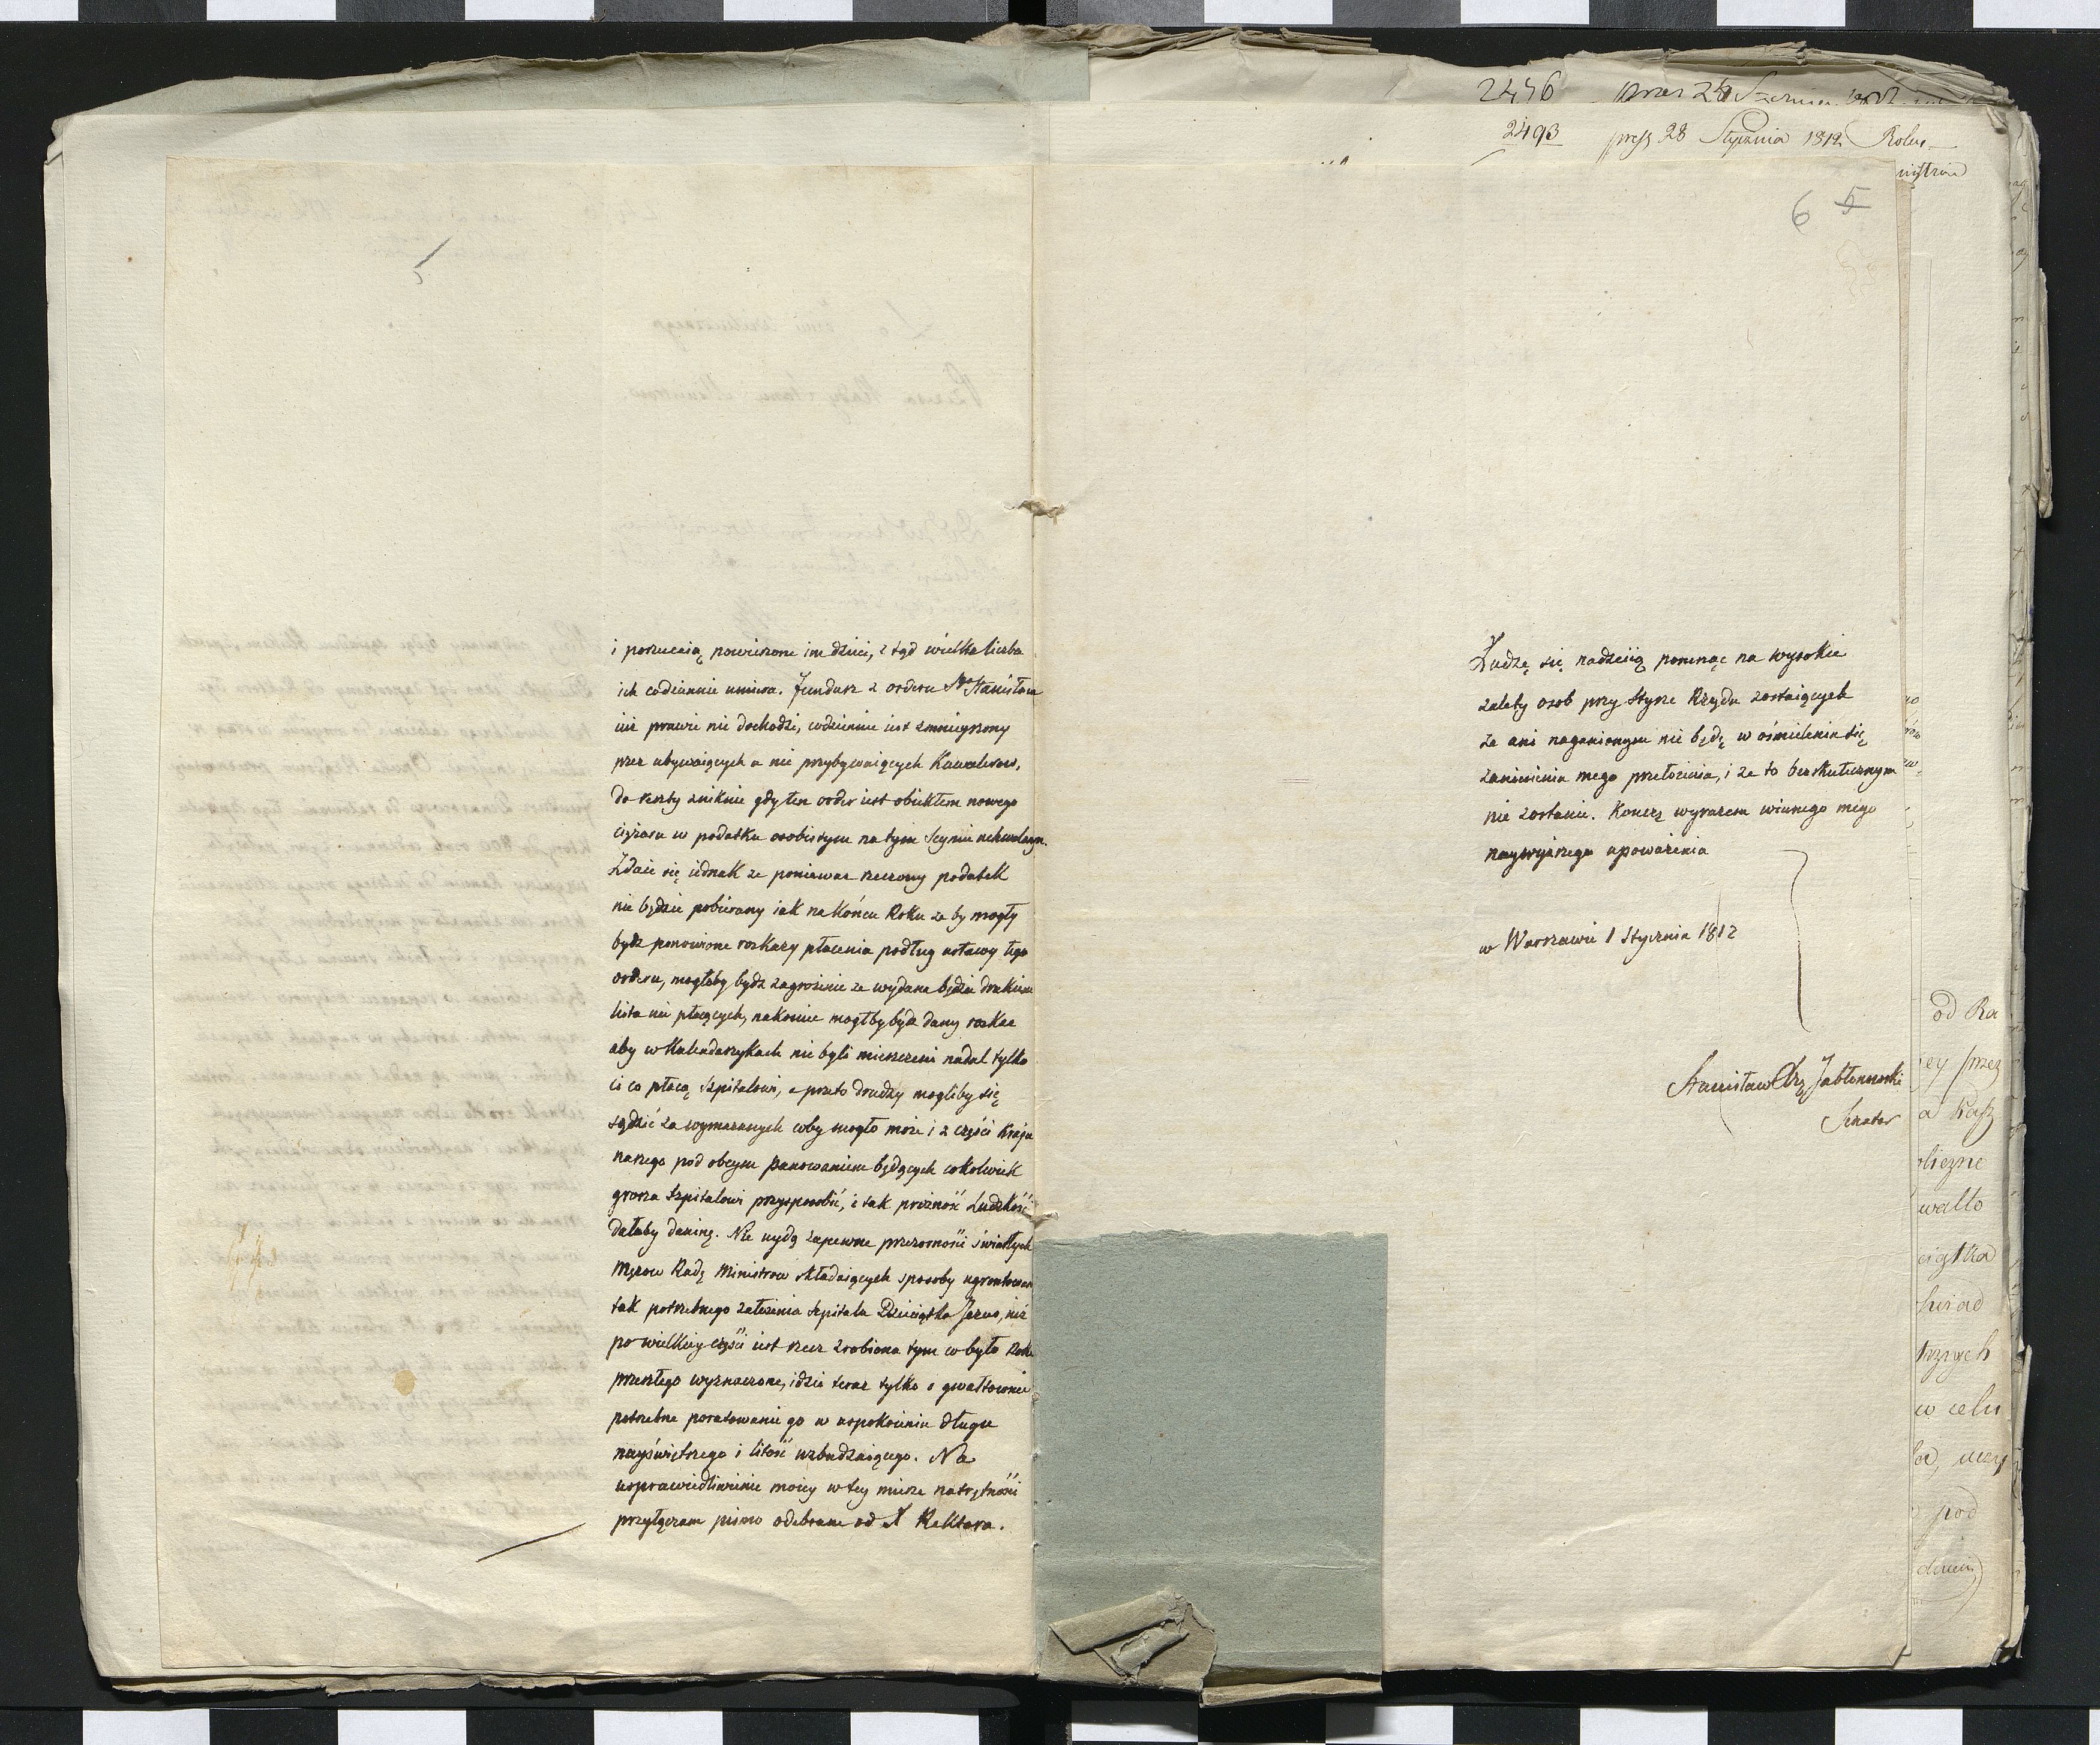 5
i porzucaią powierzone im dzieci, z tąd wielka liczba
ich codziennie umiera. Fundusz z orderu Sgo Stanisława
iuż prawie nie dochodzi, codziennie iest zmnieyszony
przez ubywaiących a nie przybywaiących Kawalerow,
do reszty zniknie gdy ten order iest obiektem nowego
ciężaru w podatku osobistym na tym Seymie uchwalonym.
Zdaie się iednak że ponieważ rzeczony podatek
nie będzie pobierany iak na końcu Roku że by mogły
bydź ponowione rozkazy płacenia podług ustawy tego
orderu, mogłoby bydź zagrożenie że wydana będzie drukiem
lista nie płacących, nakoniec mogłby bydź dany rozkaz
aby w Kalendarzykach nie byli mieszczeni nadal tylko
ci co płacą Szpitalowi, a przeto drudzy mogliby się
sądzić za wymazanych coby mogło może i z części Kraju
naszego pod obcym panowaniem będących cokolwiek
grosza Szpitalowi przysposobić, i tak próżność Ludzkość
dałaby daninę. Nie uydą zapewne przezorności światłych
Mężow Radę Ministrow składaiących sposoby ugruntowania
tak potrzebnego założenia szpitala Dzieciątka Jezus, iuż
po wielkiey części iest rzecz zrobiona tym co było Roku
przeszłego wyznaczone, idzie teraz tylko o gwałtownie
potrzebne poratowanie go w uspokoieniu długu
nayświętszego i litość wzbudzaiącego. Na
usprawiedliwienie moiey w tey mierze natrętności
przyłączam pismo odebrane od X Rektora.
2493 press 28 Stycznia 1812 Roku
6 5
Łudzę się nadzieią pomnąc na wysokie
zalety osob przy Styrze Rządu zostaiących
że ani naganionym nie będę w ośmieleniu się
zaniesienia mego przełożenia, i że to bezskutecznym
nie zostanie. Kończę wyrazem winnego mego
naywyższego upoważenia
w Warszawie 1 Stycznia 1812
Stanisław Xżę Jabłonowski
Senator
od Ra
ey przez
w celu
pod